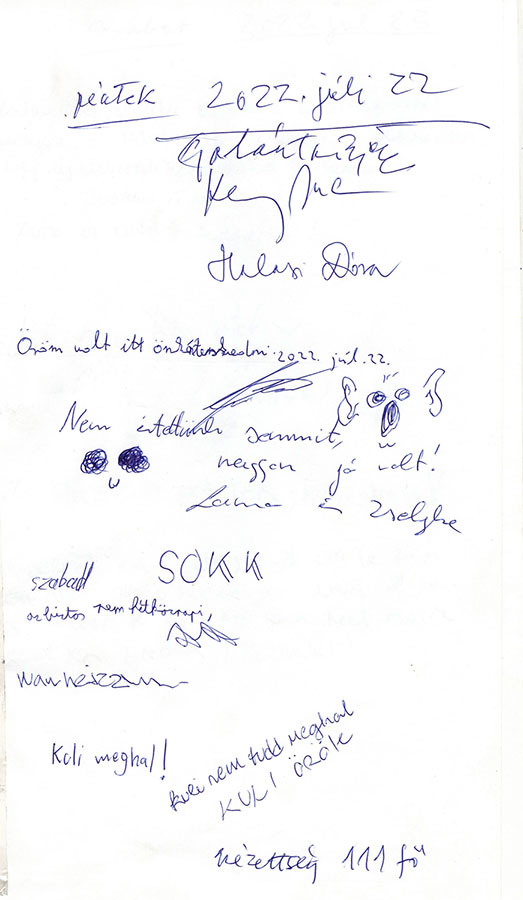 péntek 2022. júli 22
Halasi Dóra
Öröm volt itt önkénteskedni. 2022. júl. 22.
Nem értettünk semmit,
nagyon jó volt!
Lama és Zselyke
SOKK
szabad
az biztos nem hétköznapi,
Kuli meghal!
kuli nem tud meghal
KULI ÖRÖK
nézettség 111 fő